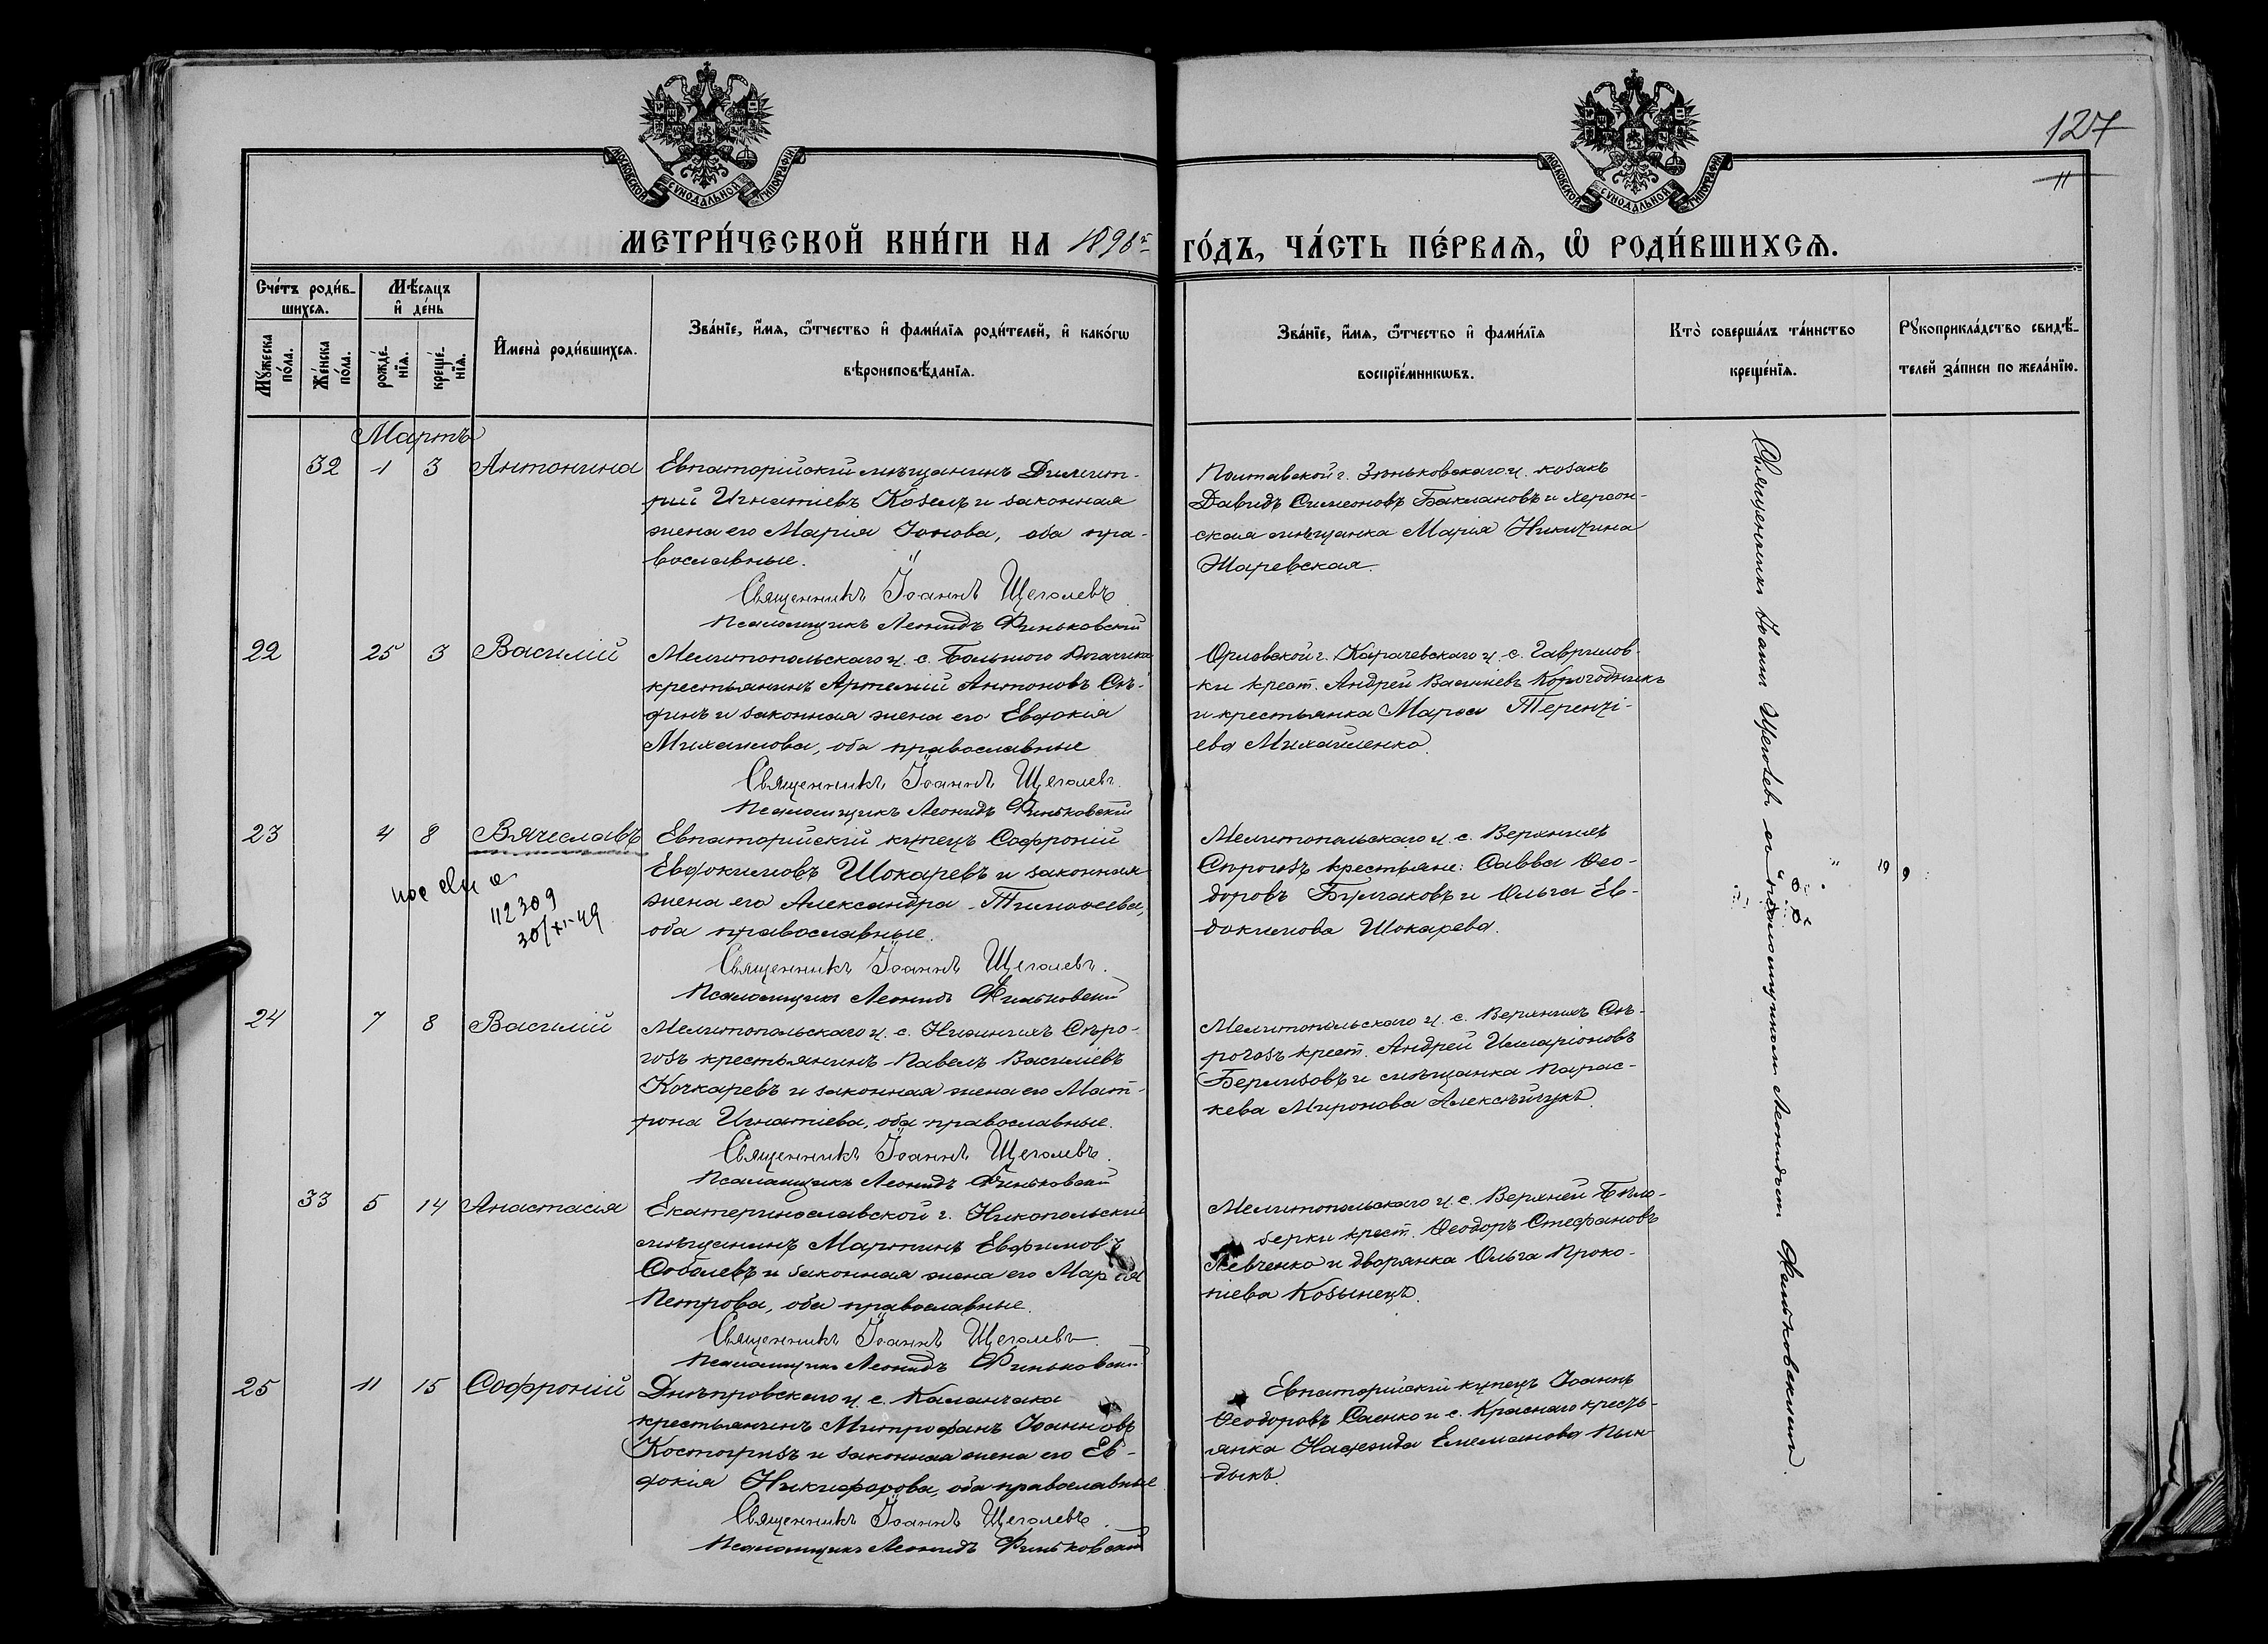 127
11
МОСКОВСКОЙ СѴНОДАЛЬНОЙ ТИПОГРАФІИ
МОСКОВСКОЙ СѴНОДАЛЬНОЙ ТИПОГРАФІИ
МЕТРИ́ЧЕСКОЙ КНИ́ГИ НА 1896й ГО́ДЪ, ЧА́СТЬ ПЕ́РВАѦ, Ѡ РОДИ́ВШИХСѦ.
Сче́тъ роди́в-
шихсѧ.
Мꙋжеска по́ла.
Же́нска по́ла.
Мѣ́сѧцъ
и҆ де́нь
рожде́-
нїѧ.
креще́-
нїѧ.
И҆мена̀ роди́вшихсѧ.
Зва́нїе, и҆́мѧ, ѻ҆́тчество и҆ фами́лїѧ роди́телей, и҆ како́гѡ
вѣроисповѣ́данїѧ.
Зва́нїе, и҆́мѧ, ѻ҆́тчество и҆ фами́лїѧ
воспрїе́мникѡвъ.
Кто̀ соверша́лъ та́инство
креще́нїѧ.
Рꙋкоприкла́дство свидѣ́-
телей за́писи по жела́нїю.
Мартъ
32 1 3 Антонина
Евпаторійскій мѣщанинъ Димит-
рій Игнатіевъ Козелъ и законная
жена его Марія Іонова, оба пра-
вославные.
Священникъ Іоаннъ Щеголевъ
Псаломщикъ Леонидъ Финьковскій
Полтавской г. Зѣньковскаго у. козакъ
Давидъ Симеоновъ Баклановъ и херсон-
ская мѣщанка Марія Никитина
Жаревская.
22 25 3 Василій
Мелитопольскаго у. с. Большого Рогачика
крестьянинъ Артемій Антоновъ Съ-
динъ и законная жена его Евдокія
Михаилова, оба православные
Священникъ Іоаннъ Щеголевъ.
Псаломщикъ Леонидъ Финьковскій
Орловской г. Карачевскаго у. с. Гаврилов-
ки крест. Андрей Василіевъ
и крестьянка Марѳа Теренті-
ева Михайленко.
23 4 8 Вячеславъ
112309
30/XI-49
Евпаторійскій купецъ Софроній
Евдокимовъ Шокаревъ и законная
жена его Александра Тимоѳеева,
оба православные.
Священникъ Іоаннъ Щеголевъ.
Псаломщикъ Леонидъ Финьковскій
Мелитопольскаго у. с. Верхнихъ
Сѣрогозъ крестьяне: Савва Ѳео-
доровъ Булгаковъ и Ольга Ев-
докимова Шокарева.
24 7 8 Василій
Мелитопольскаго у. с. Нижнихъ Сѣро-
гозъ крестьянинъ Павелъ Василіевъ
Кочкаревъ и законная жена его Мат-
рона Игнатіева, оба православные.
Священникъ Іоаннъ Щеголевъ.
Псаломщикъ Леонидъ Финьковскій
Мелитопольскаго у. с. Верхнихъ Сѣ-
рогозъ крест. Андрей Иларіоновъ
Берлизовъ и мѣщанка Парас-
кева Миронова Алексѣйчукъ.
33 5 14 Анастасія
Екатеринославской г. Никопольскій
мѣщанинъ Мартинъ Евфимовъ
Соболевъ и законная жена его Марія
Петрова, оба православные.
Священникъ Іоаннъ Щеголевъ
Псаломщикъ Леонидъ Финьковскій
Мелитопольскаго у. с. Верхней Бѣло-
зерки крест. Ѳеодоръ Стефановъ
Левченко и дворянка Ольга Проко-
піева Козынецъ.
25 11 15 Софроній
Днѣпровскаго у. с. Каланчака
крестьянинъ Митрофанъ Іоанновъ
Костогризъ и законная жена его Ев-
докія Никифорова, оба православные
Священникъ Іоаннъ Щеголевъ.
Псаломщикъ Леонидъ Финьковскій
Евпаторійскій купецъ Іоаннъ
Ѳеодоровъ Саенко и с. Краснаго кресть-
янка Надежда Емеліанова Пын-
дыкъ.
Священникъ Іоаннъ Щеголевъ съ псаломщикомъ Леонидомъ Финьковскимъ.